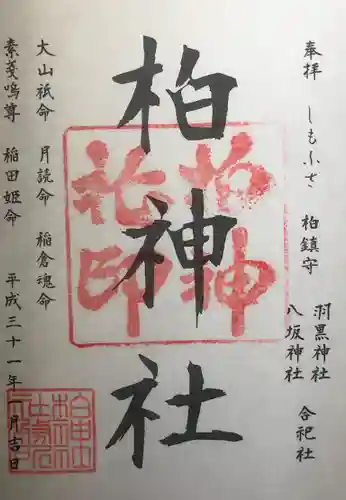 奉拝 しもふさ 柏鎮守
羽黒神社
八坂神社
合祀社
柏神社
柏神社印
大山祇命 月読命 稲倉魂命
素戔嗚尊 稲田姫命 平成三十一年 月吉日